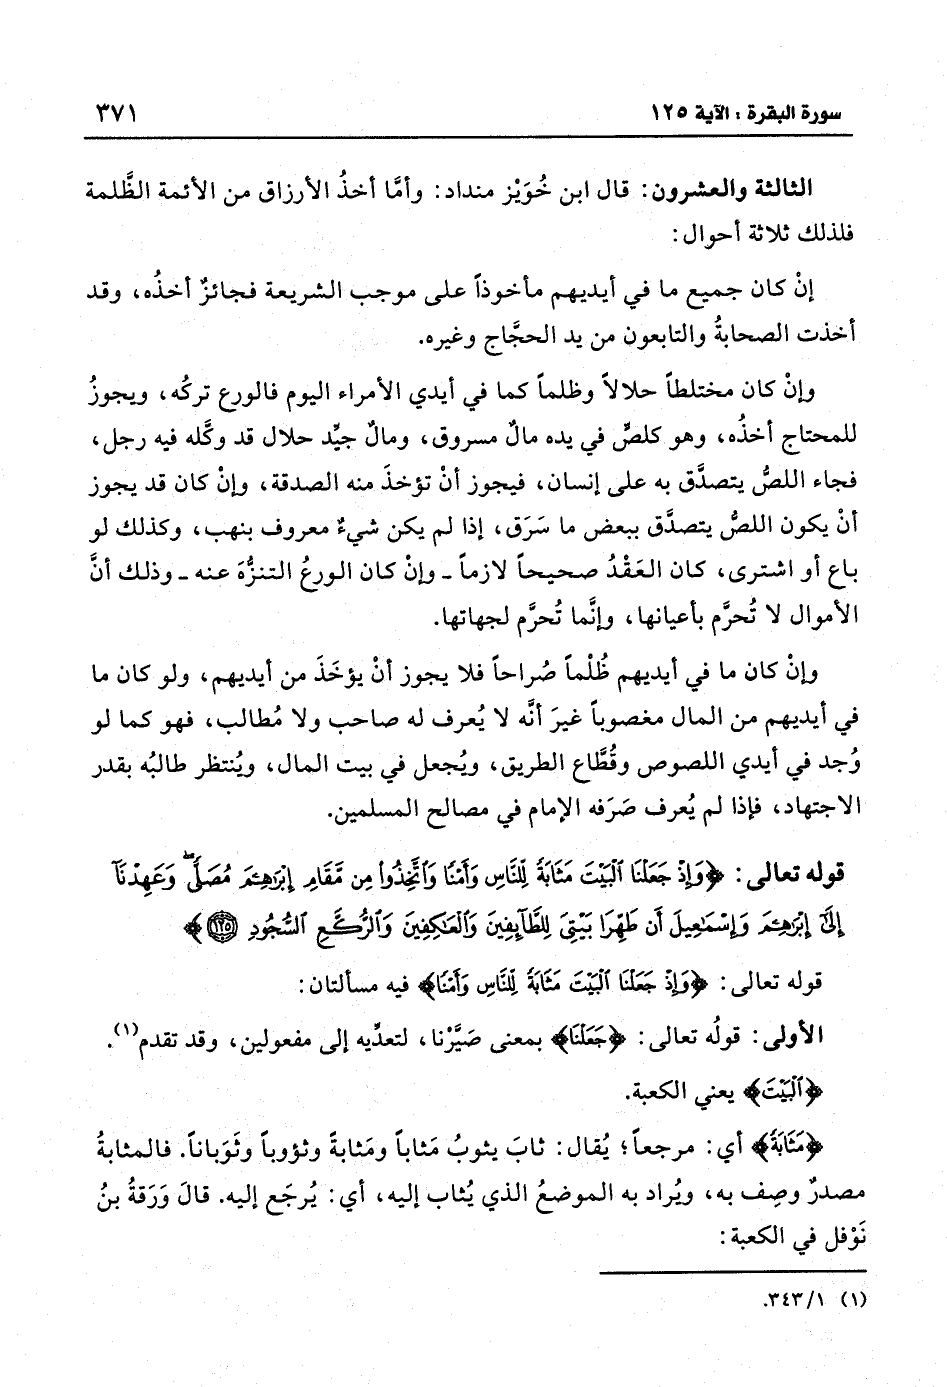 سورة البقرة : الآية ١٢٥
٣٧١
الثالثة والعشرون: قال ابن خُوَيْز منداد: وأمَّا أخذُ الأرزاق من الأئمة الظَّلمة
فلذلك ثلاثة أحوال:
إنْ كان جميع ما في أيديهم مأخوذاً على موجب الشريعة فجائزٌ أخذُه، وقد
أخذت الصحابةُ والتابعون من يد الحجَّاج وغيره.
وإنْ كان مختلطاً حلالاً وظلماً كما في أيدي الأمراء اليوم فالورع تركُه، ويجوزُ
للمحتاج أخذُه، وهو كلصٍّ في يده مالٌ مسروق، ومالٌ جيِّد حلال قد وكَّله فيه رجل،
فجاء اللصُّ يتصدَّق به على إنسان، فيجوز أنْ تؤخذَ منه الصدقة، وإنْ كان قد يجوز
أنْ يكون اللصُّ يتصدَّق ببعض ما سَرَق، إذا لم يكن شيءٌ معروف بنهب، وكذلك لو
باع أو اشترى، كان العَقْدُ صحيحاً لازماً ـ وإنْ كان الورعُ التنزُّهَ عنه ـ وذلك أنَّ
الأموال لا تُحرَّم بأعيانها، وإنَّما تُحرَّم لجهاتها.
وإنْ كان ما في أيديهم ظُلْماً صُراحاً فلا يجوز أنْ يؤخَذَ من أيديهم، ولو كان ما
في أيديهم من المال مغصوباً غيرَ أنَّه لا يُعرف له صاحب ولا مُطالب، فهو كما لو
وُجد في أيدي اللصوص وقُطَّاع الطريق، ويُجعل في بيت المال، ويُنتظر طالبُه بقدر
الاجتهاد، فإذا لم يُعرف صَرَفه الإمام في مصالح المسلمين.
قوله تعالى: ﴿وَإِذْ جَعَلْنَا ٱلْبَيْتَ مَثَابَةً لِّلنَّاسِ وَأَمْنًا وَٱتَّخِذُوا۟ مِن مَّقَامِ إِبْرَٰهِـۧمَ مُصَلًّى ۖ وَعَهِدْنَآ
إِلَىٰٓ إِبْرَٰهِـۧمَ وَإِسْمَـٰعِيلَ أَن طَهِّرَا بَيْتِىَ لِلطَّآئِفِينَ وَٱلْعَـٰكِفِينَ وَٱلرُّكَّعِ ٱلسُّجُودِ ١٢٥﴾
قوله تعالى: ﴿وَإِذْ جَعَلْنَا ٱلْبَيْتَ مَثَابَةً لِّلنَّاسِ وَأَمْنًا﴾ فيه مسألتان:
الأولى: قولُه تعالى: ﴿جَعَلْنَا﴾ بمعنى صَيَّرْنا، لتعدِّيه إلى مفعولين، وقد تقدم(١).
﴿ٱلْبَيْتَ﴾ يعني الكعبة.
﴿مَثَابَةً﴾ أي: مرجعاً؛ يُقال: ثابَ يثوبُ مَثاباً ومَثابةً وثؤوباً وثَوَباناً. فالمثابةُ
مصدرٌ وصِف به، ويُراد به الموضعُ الذي يُثاب إليه، أي: يُرجَع إليه. قالَ وَرَقةُ بنُ
نَوْفل في الكعبة:
(١) ٣٤٣/١.